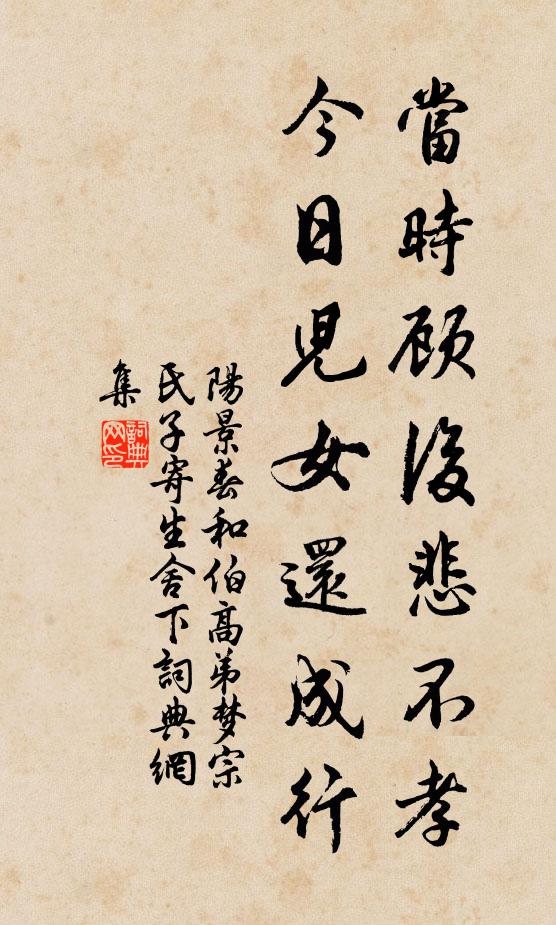 當時顧後悲不孝
今日兒女還成行
陽景春和伯高弟梦宗
氏子寄生舍下詞典網
集
詞典
网印